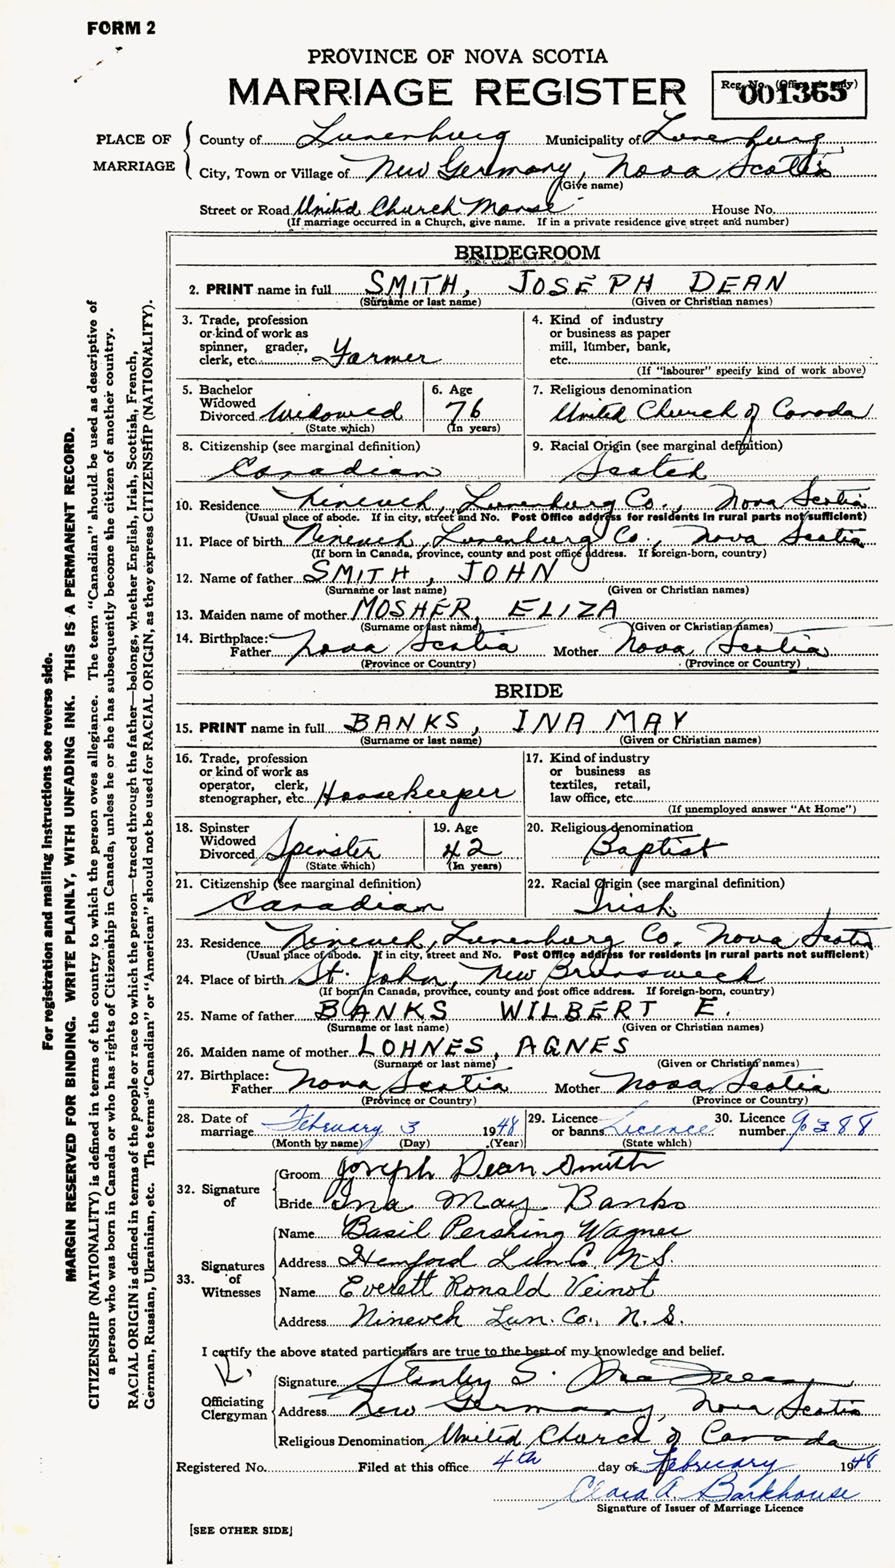 FORM 2
PROVINCE OF NOVA SCOTIA
MARRIAGE REGISTER
Reg. No. (Office use only)
001365
PLACE OF MARRIAGE
County of Lunenburg Municipality of Lunenburg
City, Town or Village of New Germany, Nova Scotia
(Give name)
Street or Road United Church Manse House No.
(If marriage occurred in a Church, give name. If in a private residence give street and number)
BRIDEGROOM
2. PRINT name in full SMITH, JOSEPH DEAN
(Surname or last name) (Given or Christian names)
3. Trade, profession or kind of work as spinner, grader, clerk, etc. Farmer
4. Kind of industry or business as paper mill, lumber, bank, etc.
(If "labourer" specify kind of work above)
5. Bachelor Widowed Divorced Widowed
(State which)
6. Age 76
(In years)
7. Religious denomination
United Church of Canada
8. Citizenship (see marginal definition)
Canadian
9. Racial Origin (see marginal definition)
Scotch
10. Residence Nineveh, Lunenburg Co., Nova Scotia
(Usual place of abode. If in city, street and No. Post Office address for residents in rural parts not sufficient)
11. Place of birth Nineveh, Lunenburg Co., Nova Scotia
(If born in Canada, province, county and post office address. If foreign-born, country)
12. Name of father SMITH, JOHN
(Surname or last name) (Given or Christian names)
13. Maiden name of mother MOSHER, ELIZA
(Surname or last name) (Given or Christian names)
14. Birthplace: Father Nova Scotia Mother Nova Scotia
(Province or Country) (Province or Country)
BRIDE
15. PRINT name in full BANKS, INA MAY
(Surname or last name) (Given or Christian names)
16. Trade, profession or kind of work as operator, clerk, stenographer, etc. Housekeeper
17. Kind of industry or business as textiles, retail, law office, etc.
(If unemployed answer "At Home")
18. Spinster Widowed Divorced Spinster
(State which)
19. Age 42
(In years)
20. Religious denomination
Baptist
21. Citizenship (see marginal definition)
Canadian
22. Racial Origin (see marginal definition)
Irish
23. Residence Nineveh, Lunenburg Co. Nova Scotia
(Usual place of abode. If in city, street and No. Post Office address for residents in rural parts not sufficient)
24. Place of birth St. John, New Brunswick
(If born in Canada, province, county and post office address. If foreign-born, country)
25. Name of father BANKS WILBERT E.
(Surname or last name) (Given or Christian names)
26. Maiden name of mother LOHNES, AGNES
(Surname or last name) (Given or Christian names)
27. Birthplace: Father Nova Scotia Mother Nova Scotia
(Province or Country) (Province or Country)
28. Date of marriage February 3 1948
(Month by name) (Day) (Year)
29. Licence or banns Licence
(State which)
30. Licence number 9388
32. Signature of
Groom Joseph Dean Smith
Bride Ina May Banks
33. Signatures of Witnesses
Name Basil Pershing Wagner
Address Hemford Lun Co. N.S.
Name Everett Ronald Veinot
Address Nineveh Lun. Co., N.S.
I certify the above stated particulars are true to the best of my knowledge and belief.
Officiating Clergyman
Signature Stanley S.
Address New Germany, Nova Scotia
Religious Denomination United Church of Canada
Registered No. Filed at this office 4th day of February 1948
Clara A. Barkhouse
Signature of Issuer of Marriage Licence
[SEE OTHER SIDE]
For registration and mailing instructions see reverse side.
MARGIN RESERVED FOR BINDING. WRITE PLAINLY, WITH UNFADING INK. THIS IS A PERMANENT RECORD.
CITIZENSHIP (NATIONALITY) is defined in terms of the country to which the person owes allegiance. The term "Canadian" should be used as descriptive of
a person who was born in Canada or who has rights of Citizenship in Canada, unless he or she has subsequently become the citizen of another country.
RACIAL ORIGIN is defined in terms of the people or race to which the person—traced through the father—belongs, whether English, Irish, Scottish, French,
German, Russian, Ukrainian, etc. The terms "Canadian" or "American" should not be used for RACIAL ORIGIN, as they express CITIZENSHIP (NATIONALITY).